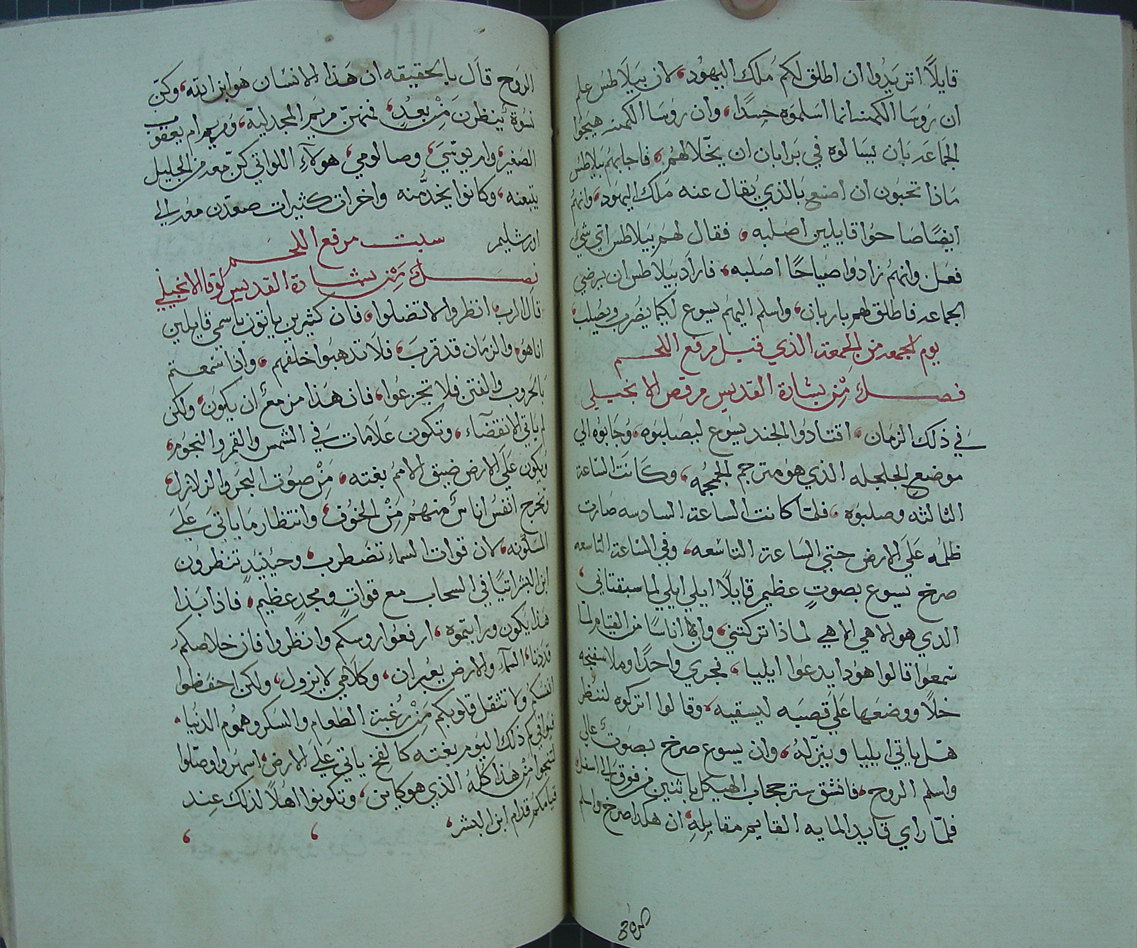 قايلاً اتريدوا ان اطلق لكم ملك اليهود، لان بيلاطس علم
ان روسا الكهنه انما اسلموه حسدًا، وان روسا الكهنه هيجوا
الجماعه بان يسالوه في برابان ان يخلا لهم، فاجابهم بيلاطس
ماذا تحبون ان اصنع بالذي يقال عنه ملك اليهود، وانهم
ايضًا صاحوا قايلين اصلبه، فقال لهم بيلاطس اي شي
فعل وانهم زادوا صياحًا اصلبه، فاراد بيلاطس ان يرضي
الجماعه فاطلق لهم باربان، واسلم اليهم يسوع لكما يضرب ويصلب،
يوم الجمعه من الجمعة الذي قبل مرفع اللحم
فصل من بشارة القديس مرقص الانجيلي
في ذلك الزمان، اقتادوا الجند يسوع ليصلبوه، وجابوه الى
موضع الجلجله الذي هو مترجم الجمجمه، وكانت الساعة
الثالثه وصلبوه، فلما كانت الساعة السادسه صارت
ظلمه على الارض حتي الساعة التاسعه، وفي الساعة التاسعه
صرخ يسوع بصوتٍ عظيم قايلاً ايلي ايلي لما سبقتاني،
الذي هو الاهي الاهي لماذا تركتني، وان اناسًا من القيام لما
سمعوا قالوا هودا يدعوا ايليا، فجري واحدًا وملا سفنجه
خلاً ووضعها على قصبه ليسقيه، وقالوا اتركوه لننظر
هل ياتي ايليا وينزله، وان يسوع صرخ بصوتٍ عالي
واسلم الروح، فانشق ستر حجاب الهيكل باثنين من فوق الى اسفل
فلما راي قايد المايه القايم مقابله ان هكذا صرخ واسلم
الروح قال بالحقيقه ان هذا الانسان هو ابن الله، وكن
نسوة ينظرون من بعدٍ، فمنهن مريم المجدلية، ومريم ام يعقوب
الصغير، وام يوسي، وصالومي، هولاء اللواتي كن معه من الجليل
يتبعنه، وكانوا يخدمنه واخرات كثيرات صعدن معه الى
اورشليم سبت مرفع اللحم
فصل من بشارة القديس لوقا الانجيلي
قال الرب، انظروا لا تضلوا، فان كثيرين ياتون باسمي قايلين
انا هو، والزمان قد قرب، فلا تدهبوا خلفهم، واذا سمعتم
بالحروب والفتن فلا تجزعوا، فان هذا مزمع ان يكون، ولكن
لم ياتي الانقضاء، وتكون علامات في الشمس والقمر والنجوم،
ويكون على الارض ضيق الامم بغته، من صوت البحر والزلازل،
تخرج انفس اناس منهم من الخوف، وانتظار ما ياتي على
المسكونه، لان قوات السماء تضطرب، وحينيدٍ تنظرون
ابن البشر اتيًا في السحاب مع قواتٍ ومجدٍ عظيم، فاذا بدا
هذا يكون ورايتموه، ارفعوا روسكم وانظروا فان خلاصكم
قد دنا، السماء والارض يعبران، وكلامي لا يزول، ولكن احفظوا
انفسكم ولا تثقل قلوبكم من رغبت الطعام والسكر وهموم الدنيا،
فيوافيكم ذلك اليوم بغته كالفخ ياتي على الارض، اسهروا وصلوا
لتنجوا من هذا كله الذي هو كاين، وتكونوا اهلاً لذلك عند
قيامكم قدام ابن البشر،